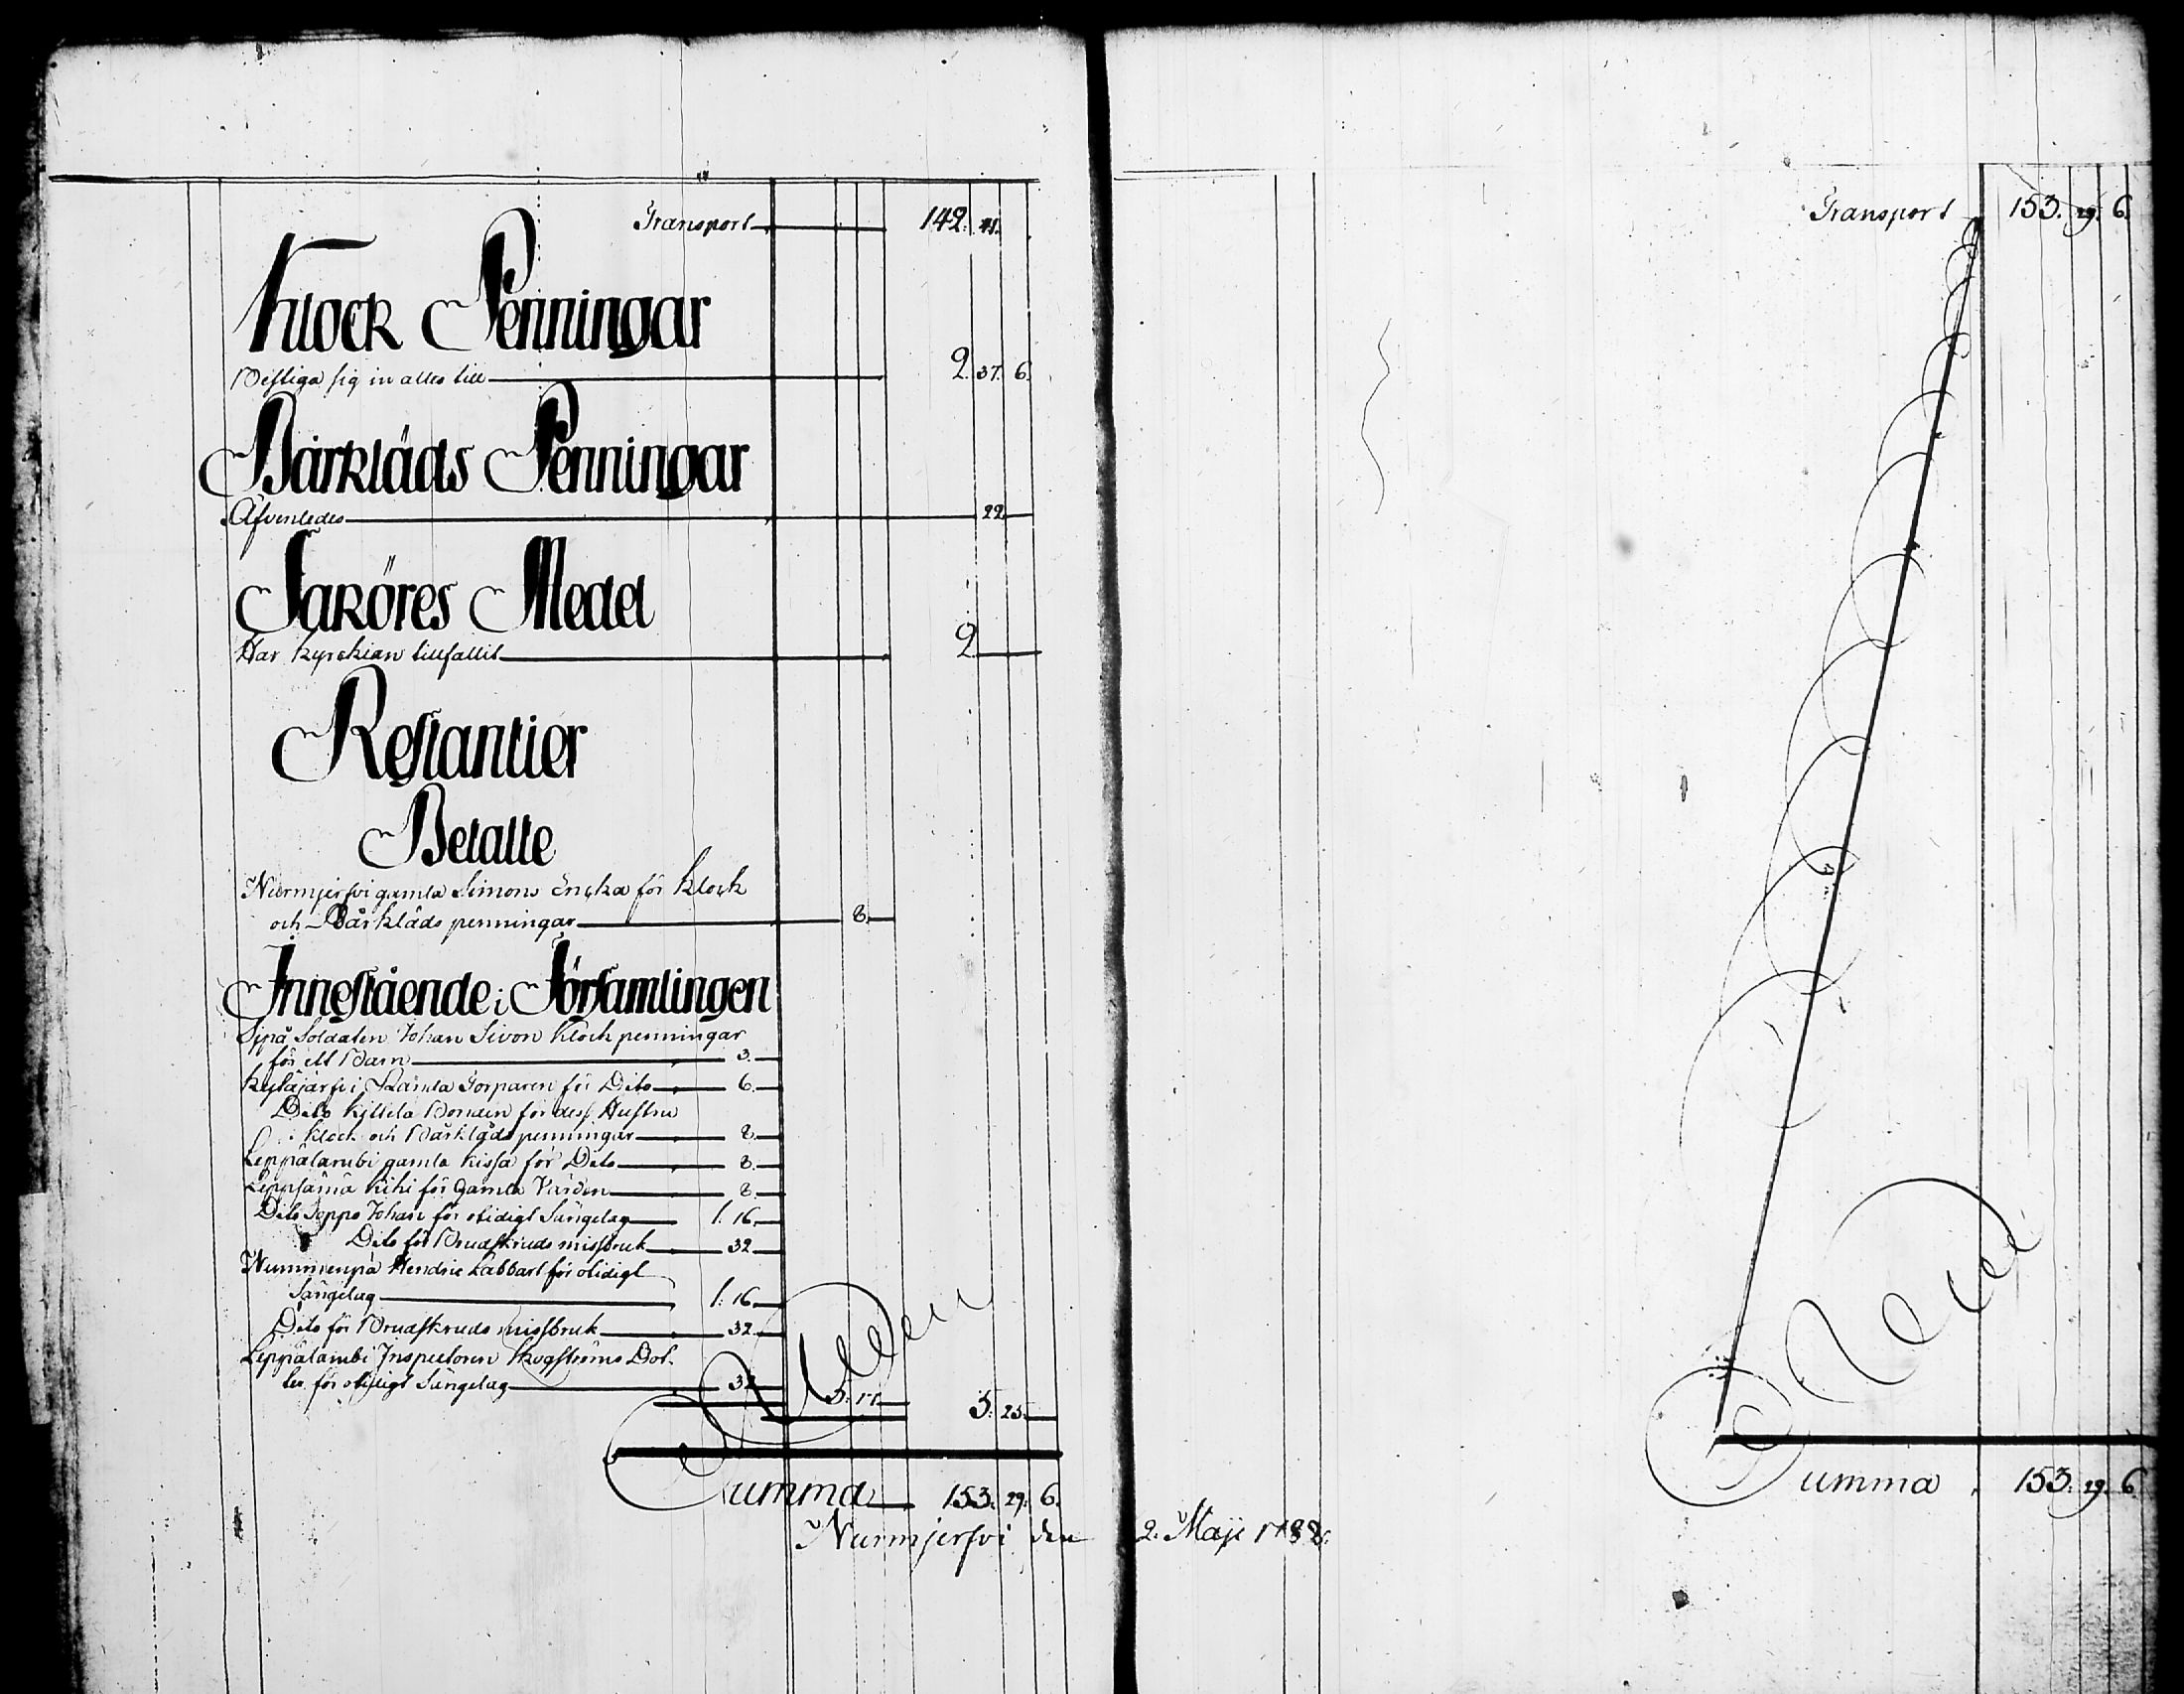 Transport 142. 41.
Klock Penningar
Bestiga sig in alles till 2. 37. 6.
Bårkläds Penningar
Äfvenledes 22
Saköres Medel
Har Kyrckian tillfallit 2
Restantier
Betalte
Nurmjersvi gamla Simons Encka för Klock
och Bårkläds penningar 8.
Innestående i Församlingen
Sipå Soldaten Johan Sivon Klock penningar
för ett Barn 3.
Kytäjärfvi Skämla Torparen för Dito 6.
Dito Kyttelä Bonden för dess Hustru
i Klock och Bårkläds penningar 8.
Leppälambi gamla Kissa för Dito 8.
Leppsämä Kihi för gamla Värden 8.
Dito Soppo Johan för otidigt Sängelag 1. 16.
Dito för Brudskruds missbruk 32
Nummenpä Hendric Labbart för otidigt
Sängelag 1. 16.
Dito för Brudskruds missbruk 32
Leppälambi Inspectoren Skogströms Dot-
ter för otidigt Sängelag 32
5. 17. 5. 25.
Summa 153. 29. 6.
Nurmjersvi den 2. Maji 1788.
Transport 153. 29. 6.
Summa 153. 29. 6.